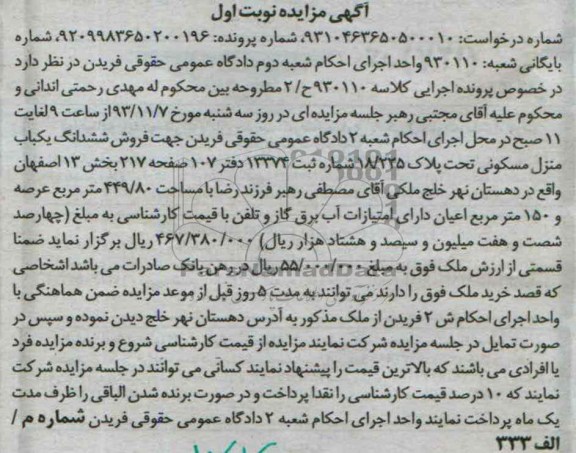 آگهی مزایده نوبت اول
شماره درخواست: ۹۳۱۰۴۶۳۶۵۰۵۰۰۰۱۰، شماره پرونده: ۹۲۰۹۹۸۳۶۵۰۲۰۰۱۹۶، شماره
بایگانی شعبه: ۹۳۰۱۱۰ واحد اجرای احکام شعبه دوم دادگاه عمومی حقوقی فریدن در نظر دارد
در خصوص پرونده اجرایی کلاسه ۹۳۰۱۱۰ح/۲ مطروحه بین محکوم له مهدی رحمتی اندانی و
محکوم علیه آقای مجتبی رهبر جلسه مزایده ای در روز سه شنبه مورخ ۹۳/۱۱/۷ از ساعت ۹ لغایت
۱۱ صبح در محل اجرای احکام شعبه ۲ دادگاه عمومی حقوقی فریدن جهت فروش ششدانگ یکباب
منزل مسکونی تحت پلاک ۱۸/۱۲۵ شماره ثبت ۱۳۳۷۴ دفتر ۱۰۷ صفحه ۲۱۷ بخش ۱۳ اصفهان
واقع در دهستان نهر خلج ملکی آقای مصطفی رهبر فرزند رضا با مساحت ۴۴۹/۸۰ متر مربع عرصه
و ۱۵۰ متر مربع اعیان دارای امتیازات آب برق گاز و تلفن با قیمت کارشناسی به مبلغ (چهارصد
شصت و هفت میلیون و سیصد و هشتاد هزار ریال) ۴۶۷/۳۸۰/۰۰۰ ریال برگزار نماید ضمنا
قسمتی از ارزش ملک فوق به مبلغ ۵۵/۰۰۰/۰۰۰ ریال در رهن بانک صادرات می باشد اشخاصی
که قصد خرید ملک فوق را دارند می توانند به مدت ۵ روز قبل از موعد مزایده ضمن هماهنگی با
واحد اجرای احکام ش ۲ فریدن از ملک مذکور به آدرس دهستان نهر خلج دیدن نموده و سپس در
صورت تمایل در جلسه مزایده شرکت نمایند مزایده از قیمت کارشناسی شروع و برنده مزایده فرد
یا افرادی می باشند که بالاترین قیمت را پیشنهاد نمایند کسانی می توانند در جلسه مزایده شرکت
نمایند که ۱۰ درصد قیمت کارشناسی را نقدا پرداخت و در صورت برنده شدن الباقی را ظرف مدت
یک ماه پرداخت نمایند واحد اجرای احکام شعبه ۲ دادگاه عمومی حقوقی فریدن شماره م /
الف ۳۳۳